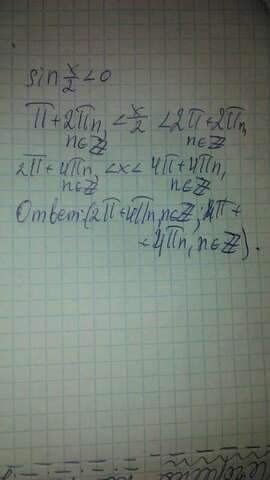 sin x/2 < 0
π + 2πn, < x/2 < 2π + 2πn,
n∈ℤ n∈ℤ
2π + 4πn, < x < 4π + 4πn,
n∈ℤ n∈ℤ
Ответ: (2π + 4πn, n∈ℤ; 4π +
+ 4πn, n∈ℤ).